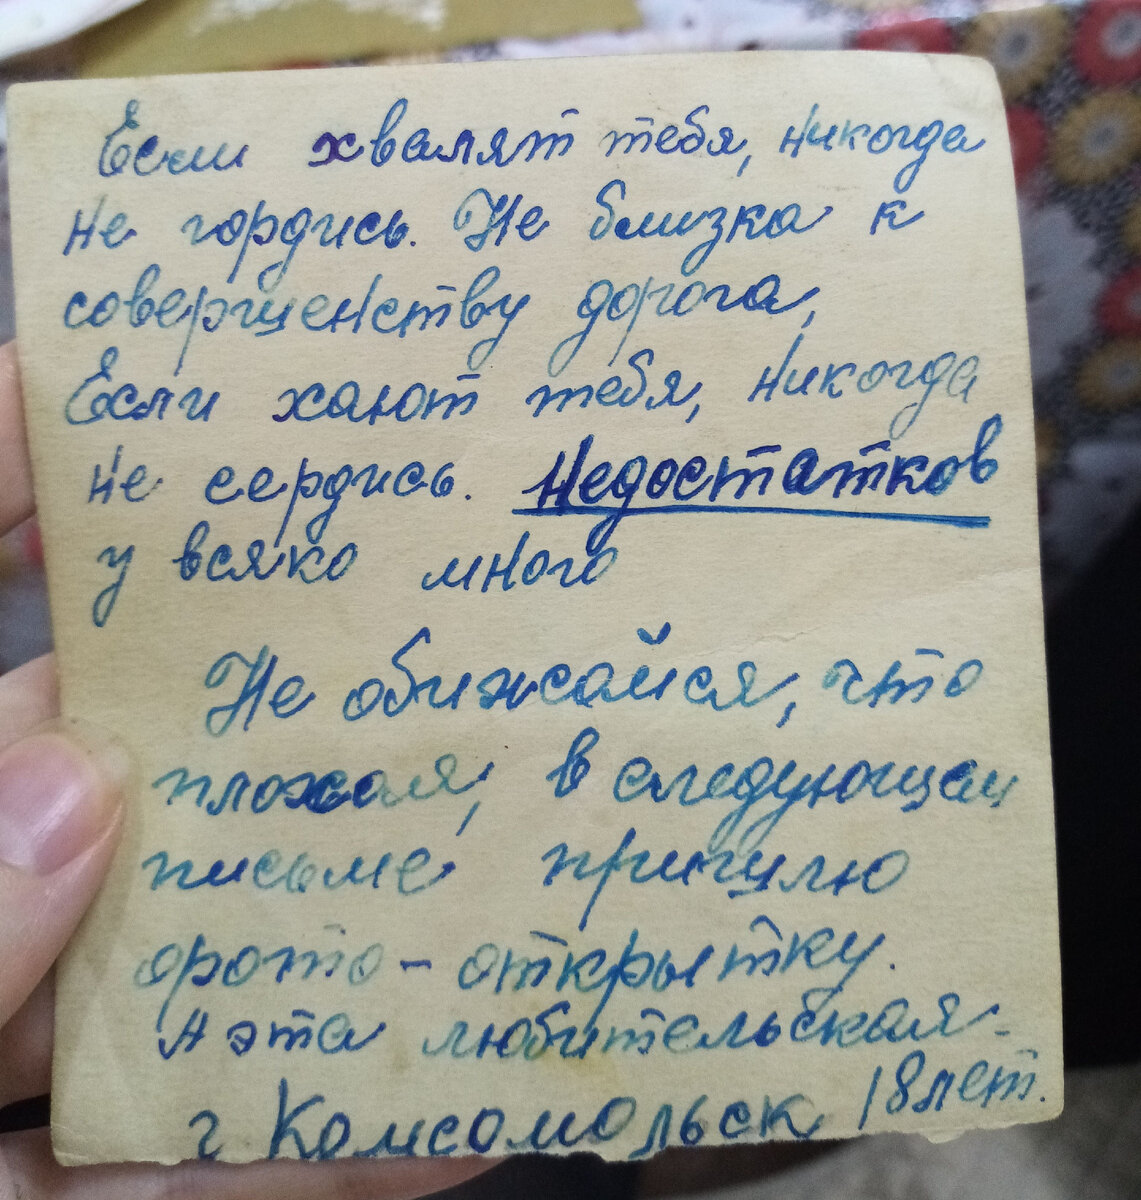 Если хвалят тебя, никогда
не гордись. Не близка к
совершенству дорога,
Если хают тебя, никогда
не сердись. Недостатков
у всяко много
Не обижайся, что
плохая, в следующем
письме пришлю
фото-открытку.
А эта любительская-
г Комсомольск 18 лет.